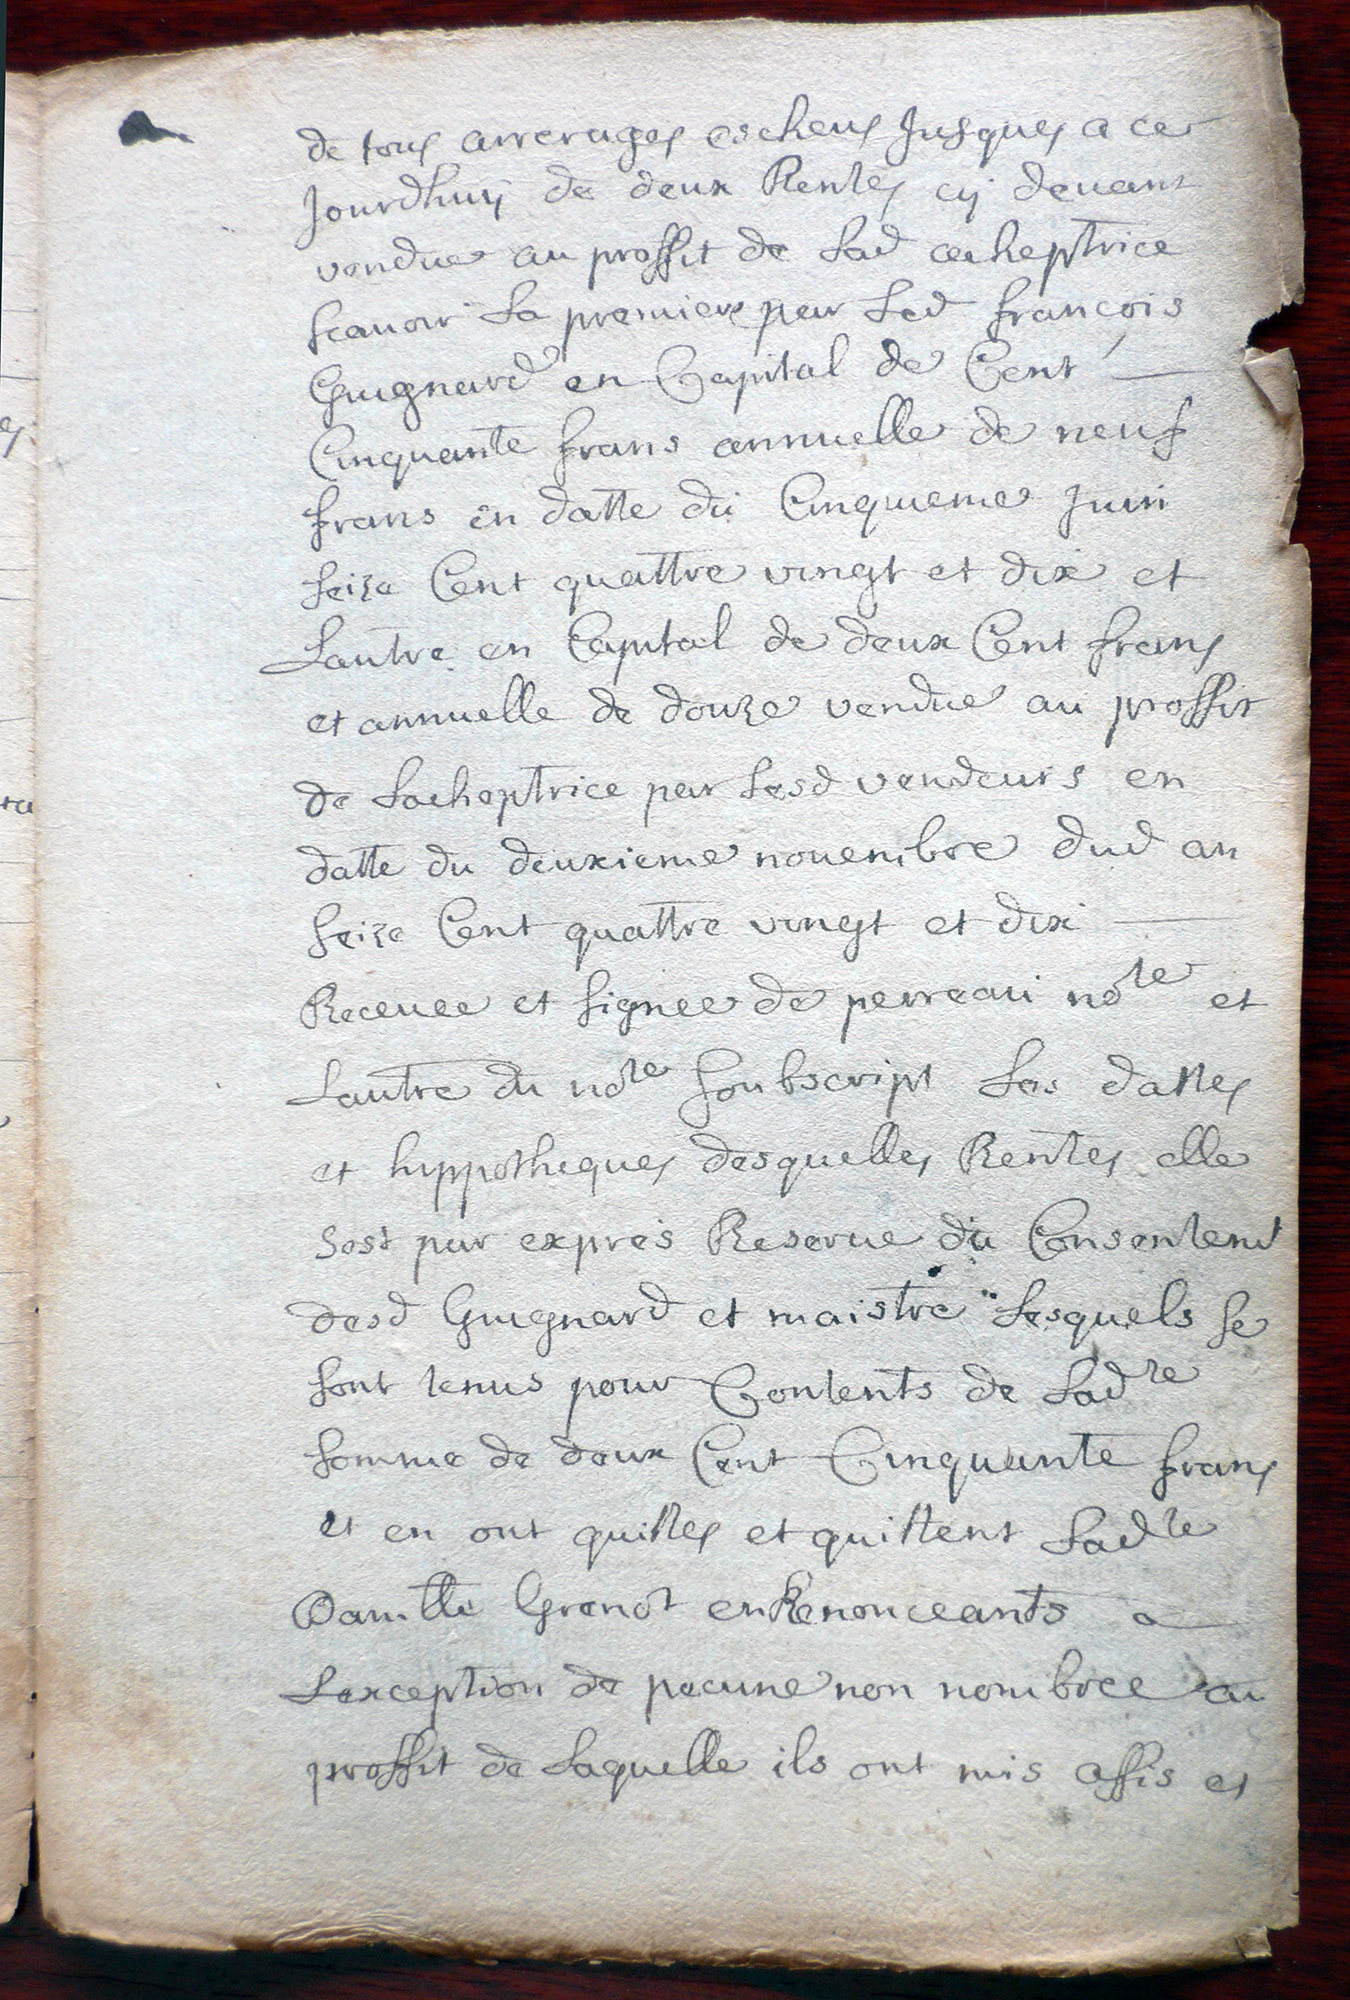 de tous arrerages escheus Jusques a ce
Jourdhuy de deux Rentes cy devant
vendue au proffit de Lad acheptrice
scavoir La premiere par Led françois
Guignard en Capital de Cent
Cinquante frans annuelle de neuf
frans en datte du Cinquieme Juin
seize Cent quattre vingt et dix et
Lautre en Capital de deux Cent frans
et annuelle de douze vendue au proffit
de Lacheptrice par Lesd vendeurs en
datte du deuxieme novembre dud an
seize Cent quattre vingt et dix
Receuee et signee de perreau nore et
Lautre du nore soubscript Les dattes
et hyppotheques desquelles Rentes elle
Sest par expres Reserve du Consentemt
desd Guignard et maistre Lesquels se
sont tenus pour Contents de Ladte
somme de deux Cent Cinquante frans
et en ont quittes et quittent Ladte
Damlle Grenot en Renonceants a
Lexception de pecune non nombree au
proffit de Laquelle ils ont mis assis et